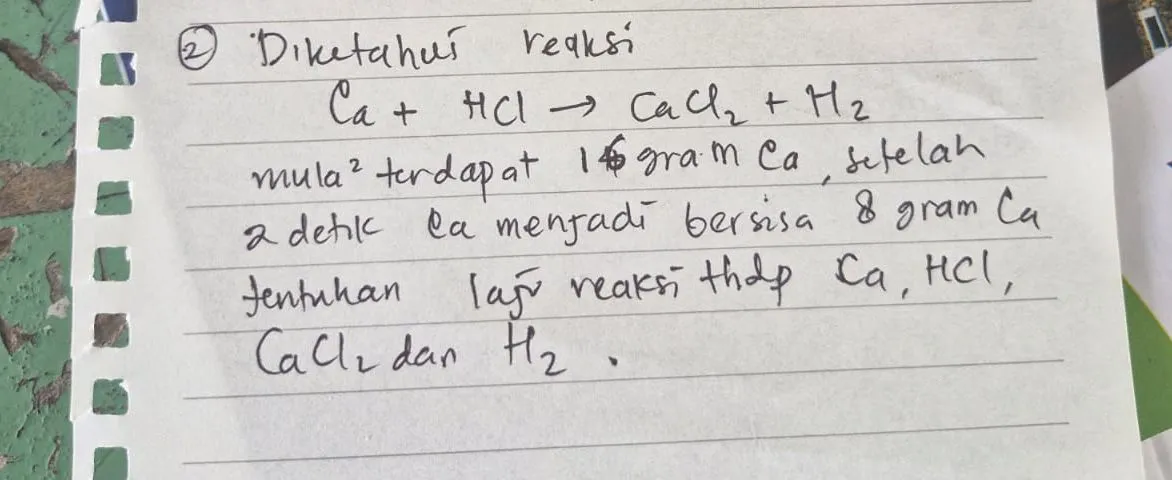 ② Diketahui reaksi
Ca + HCl → CaCl₂ + H₂
mula² terdapat 16 gram Ca, setelah
2 detik Ca menjadi bersisa 8 gram Ca
tentukan laju reaksi thdp Ca, HCl,
CaCl₂ dan H₂.